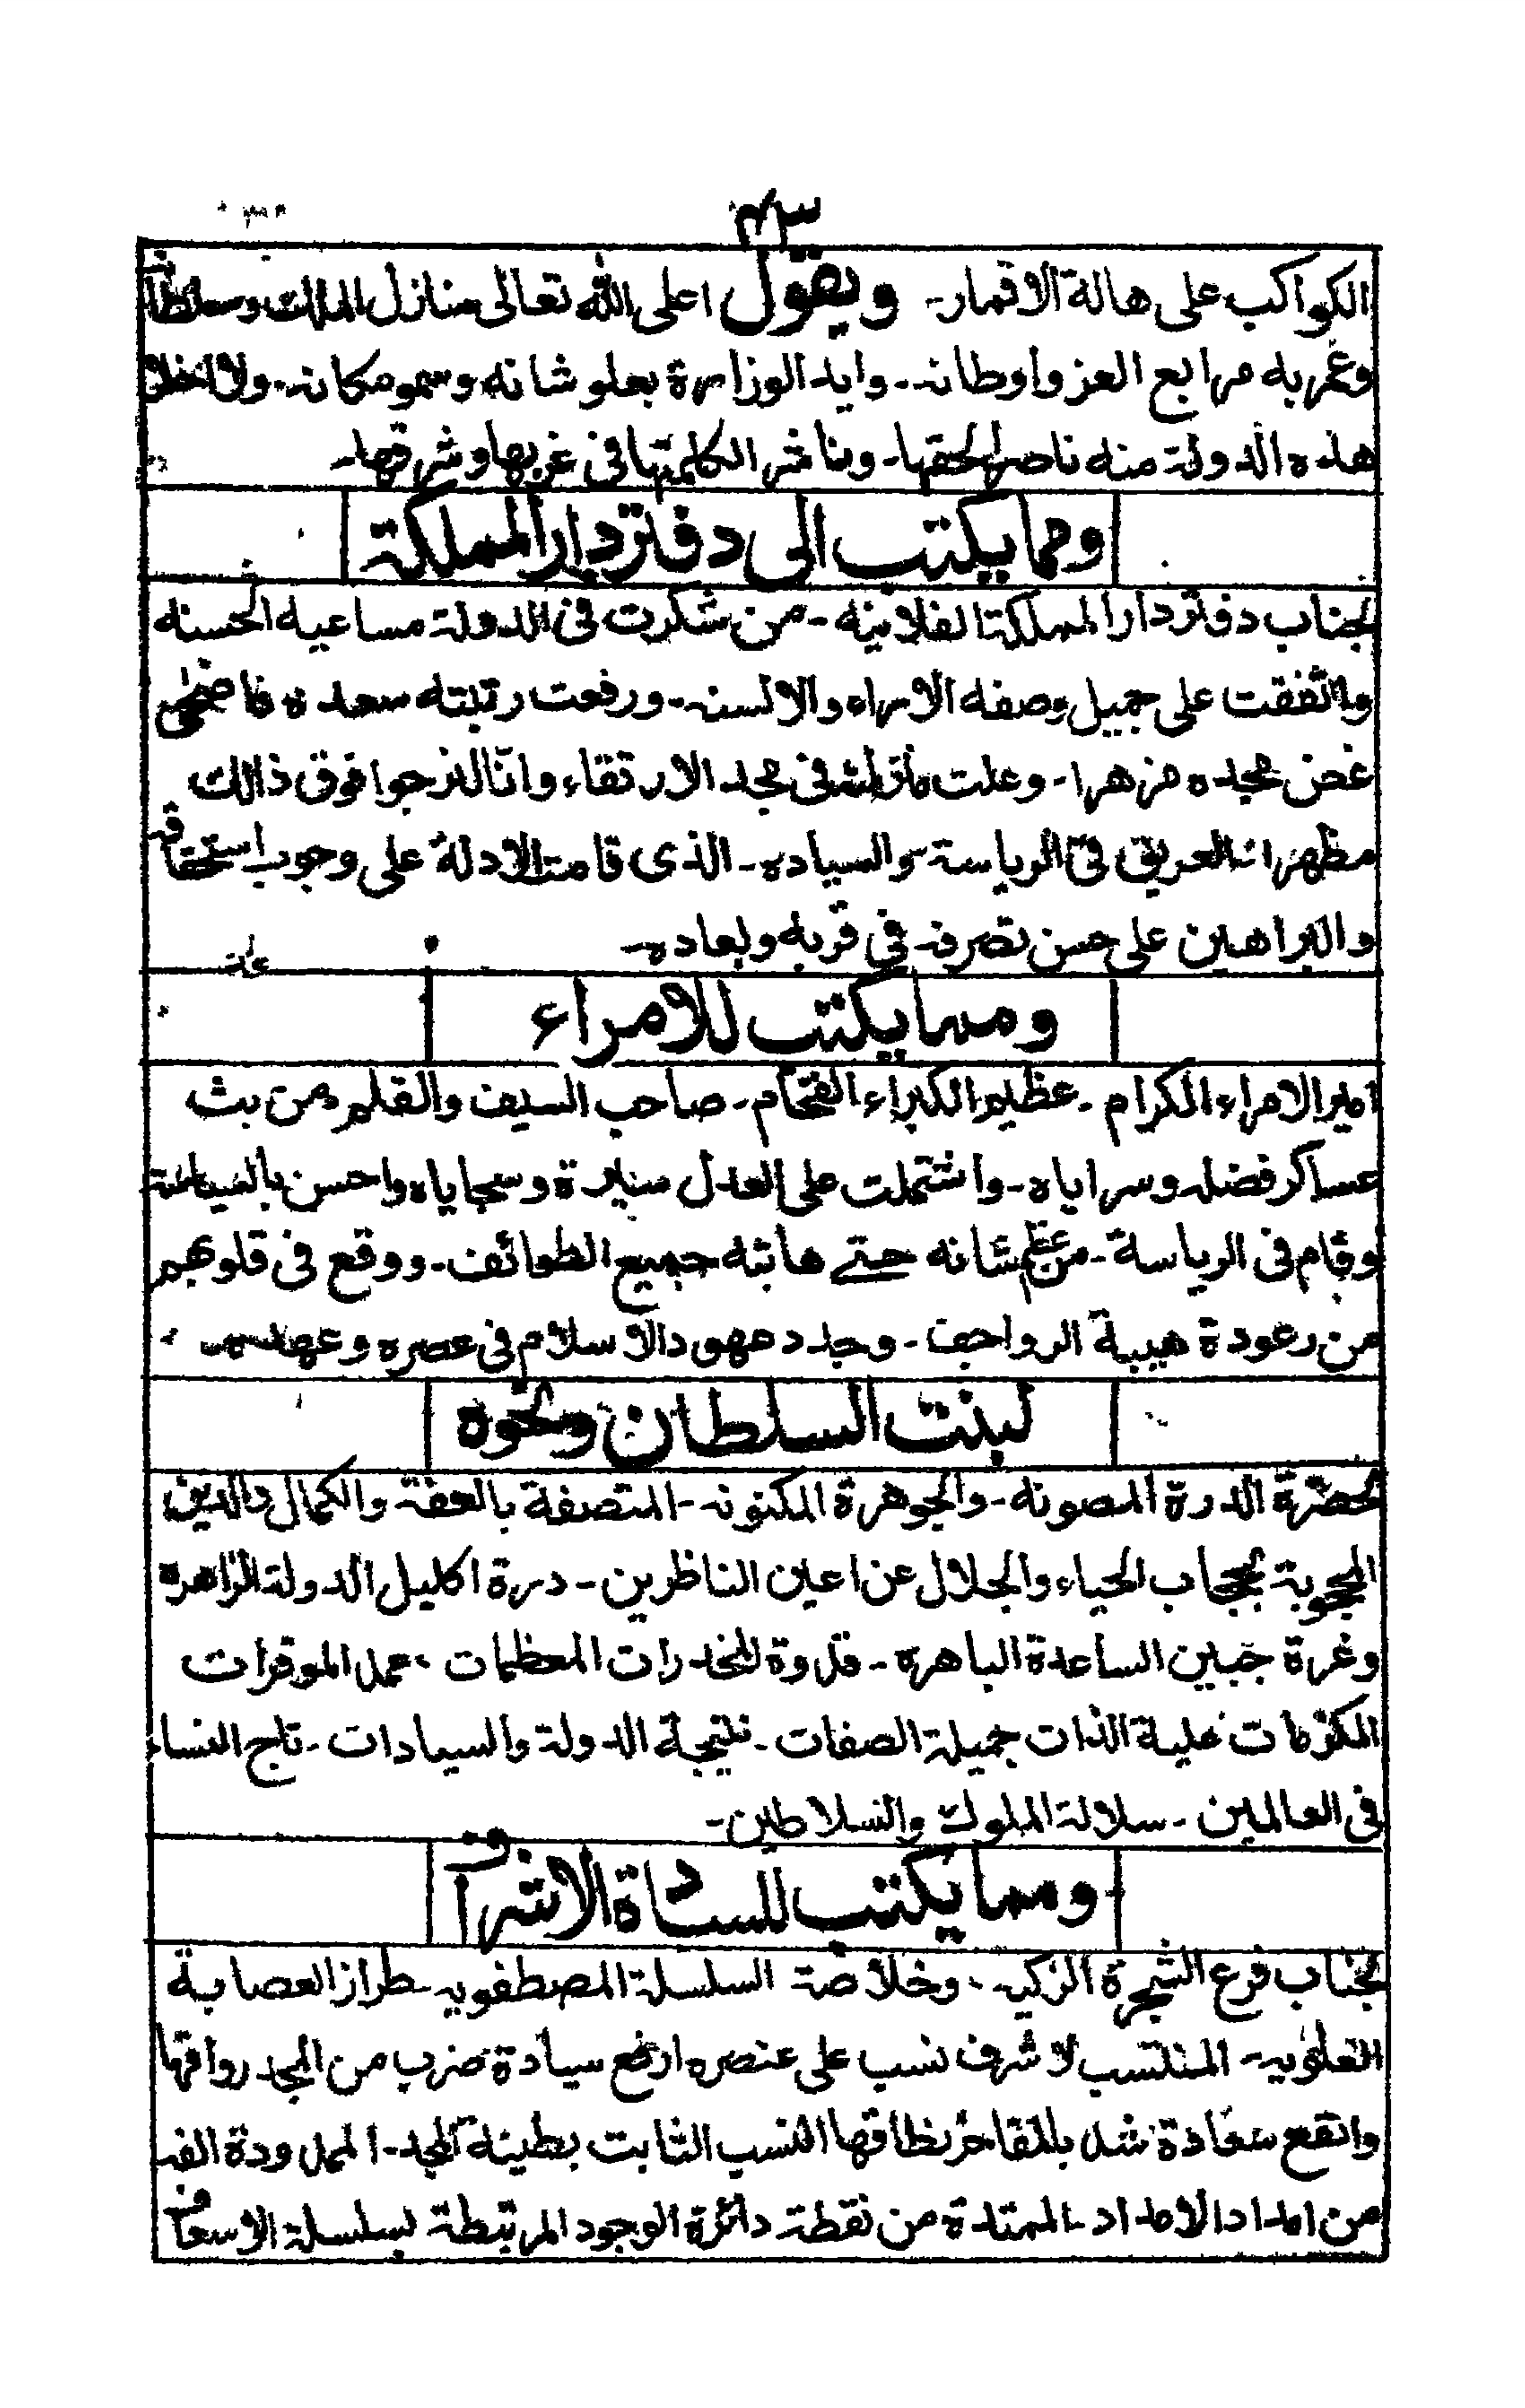 ٤٣
الكواكب على هالة الاقمار۔ ويقول اعلى الله تعالى منازل الملك وسلطانه
وعمر به مرابع العز واوطانہ۔ وايد الوزارة بعلو شانه وسمو مكانہ۔ ولا اخلا
هذه الدولة منه ناصرا لحقها۔ وناشرا لكلمتها فى غربها وشرقها۔
ومما يكتب الى دفتردار المملكة
لجناب دفتردار المملكة الفلانيه۔ من شكرت فى الدولة مساعيه الحسنه
واتفقت على جميل وصفه الاراء والالسنہ۔ ورفعت رتبته سعده فاضحى
غصن مجده مزهرا۔ وعلت فى مجد الارتقاء وانا لنرجوا فوق ذالك
مظهرا العريق فى الرياسة والسياده۔ الذى قامت الادلة على وجوب استحقاقه
والبراهين على حسن تصرفہ فى قربه وبعاده۔
ومما يكتب للامراء
امير الامراء الكرام۔ عظيم الكبراء الفخام۔ صاحب السيف والقلم من بث
عساكر فضله وسراياه۔ واشتملت على العدل سيرة وسجاياه واحسن بالسياسة
وقام فى الرياسة۔ من عظم شانه حتے هابته جميع الطوائف۔ ووقع فى قلوبهم
من رعودة هيبة الرواجف۔ وجدد عهود الاسلام فى عصره
لبنت السلطان ونحوه
لحضرة الدرة المصونه۔ والجوهرة المكنونہ۔ المتصفة بالعفة والكمال والدين
المحجوبة بحجاب الحياء والجلال عن اعين الناظرين۔ درة اكليل الدولة الزاهرة
وغرة جبين الساعدة الباهره۔ قدوة المخدرات المعظمات، عمد الموقرات
المكرمات علية الذات جميلة الصفات۔ نتيجة الدولة والسيادات۔ تاج النساء
فى العالمين۔ سلالة الملوك والسلاطين۔
ومما يكتب للسادة الاشراف
لجناب فرع الشجرة الزكيہ، وخلاصة السلسلة المصطفويہ۔ طراز العصابة
العلويہ۔ المنتسب لاشرف نسب على عنصره ارفع سيادة ضرب من المجد رواقها
وانفع سعادة شد بالمفاخر نطاقها النسب الثابت بطينة المجد۔ الممدودة الفہ
من امداد الامداد۔ الممتدة من نقطة دائرة الوجود المرتبطة بسلسلة الاسعاف